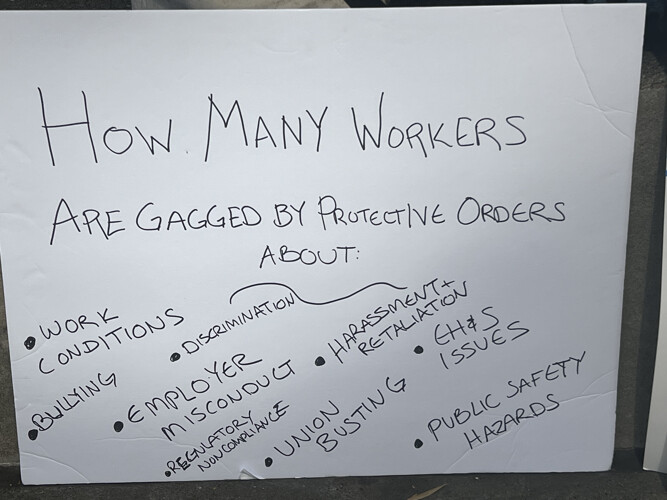 HOW MANY WORKERS
ARE GAGGED BY PROTECTIVE ORDERS
ABOUT:
• WORK
CONDITIONS
• DISCRIMINATION
• HARASSMENT +
RETALIATION
• EH&S
ISSUES
• BULLYING
• EMPLOYER
MISCONDUCT
• REGULATORY
NONCOMPLIANCE
• UNION
BUSTING
• PUBLIC SAFETY
HAZARDS